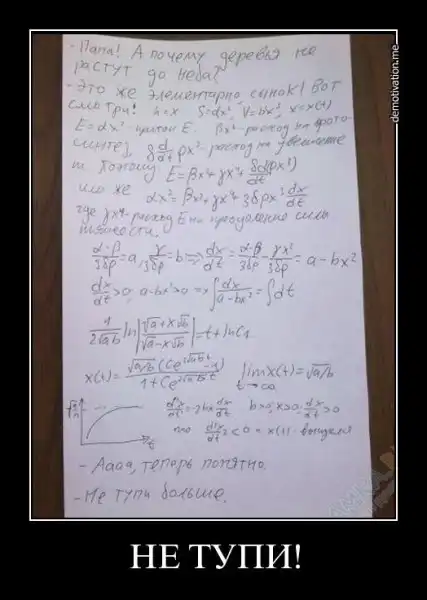 - Папа! А почему деревья не
растут до неба?
- Это же элементарно, сынок! Вот
смотри! h=x S=αx², V=bx³, x=x(t)
E=αx² приток E. βx²-расход на фото-
синтез, δ d/dt ρx³-расход на увеличение
m. Поэтому E=βx²+γx⁴+δd(ρx³)/dt
или же αx²=βx²+γx⁴+3δρx² dx/dt
где γx⁴-расход E на преодоление силы
тяжести.
(α-β)/3δρ=a, γ/3δρ=b => dx/dt=(α-β)/3δρ-γx²/3δρ=a-bx²
dx/dt>0, a-bx²>0 => ∫dx/(a-bx²)=∫dt
1/(2√ab) ln|(√a+x√b)/(√a-x√b)|=t+lnC₁
x(t)=√a/b(Ce^(2√ab t)-1)/(1+Ce^(2√ab t)) lim x(t)=√a/b
t→∞
d²x/dt²=-2bx dx/dt b>0, x>0, dx/dt>0
t
то d²x/dt²<0 => x(t)
- Аааа, теперь понятно.
- Не тупи больше.
НЕ ТУПИ!
demotivation.me